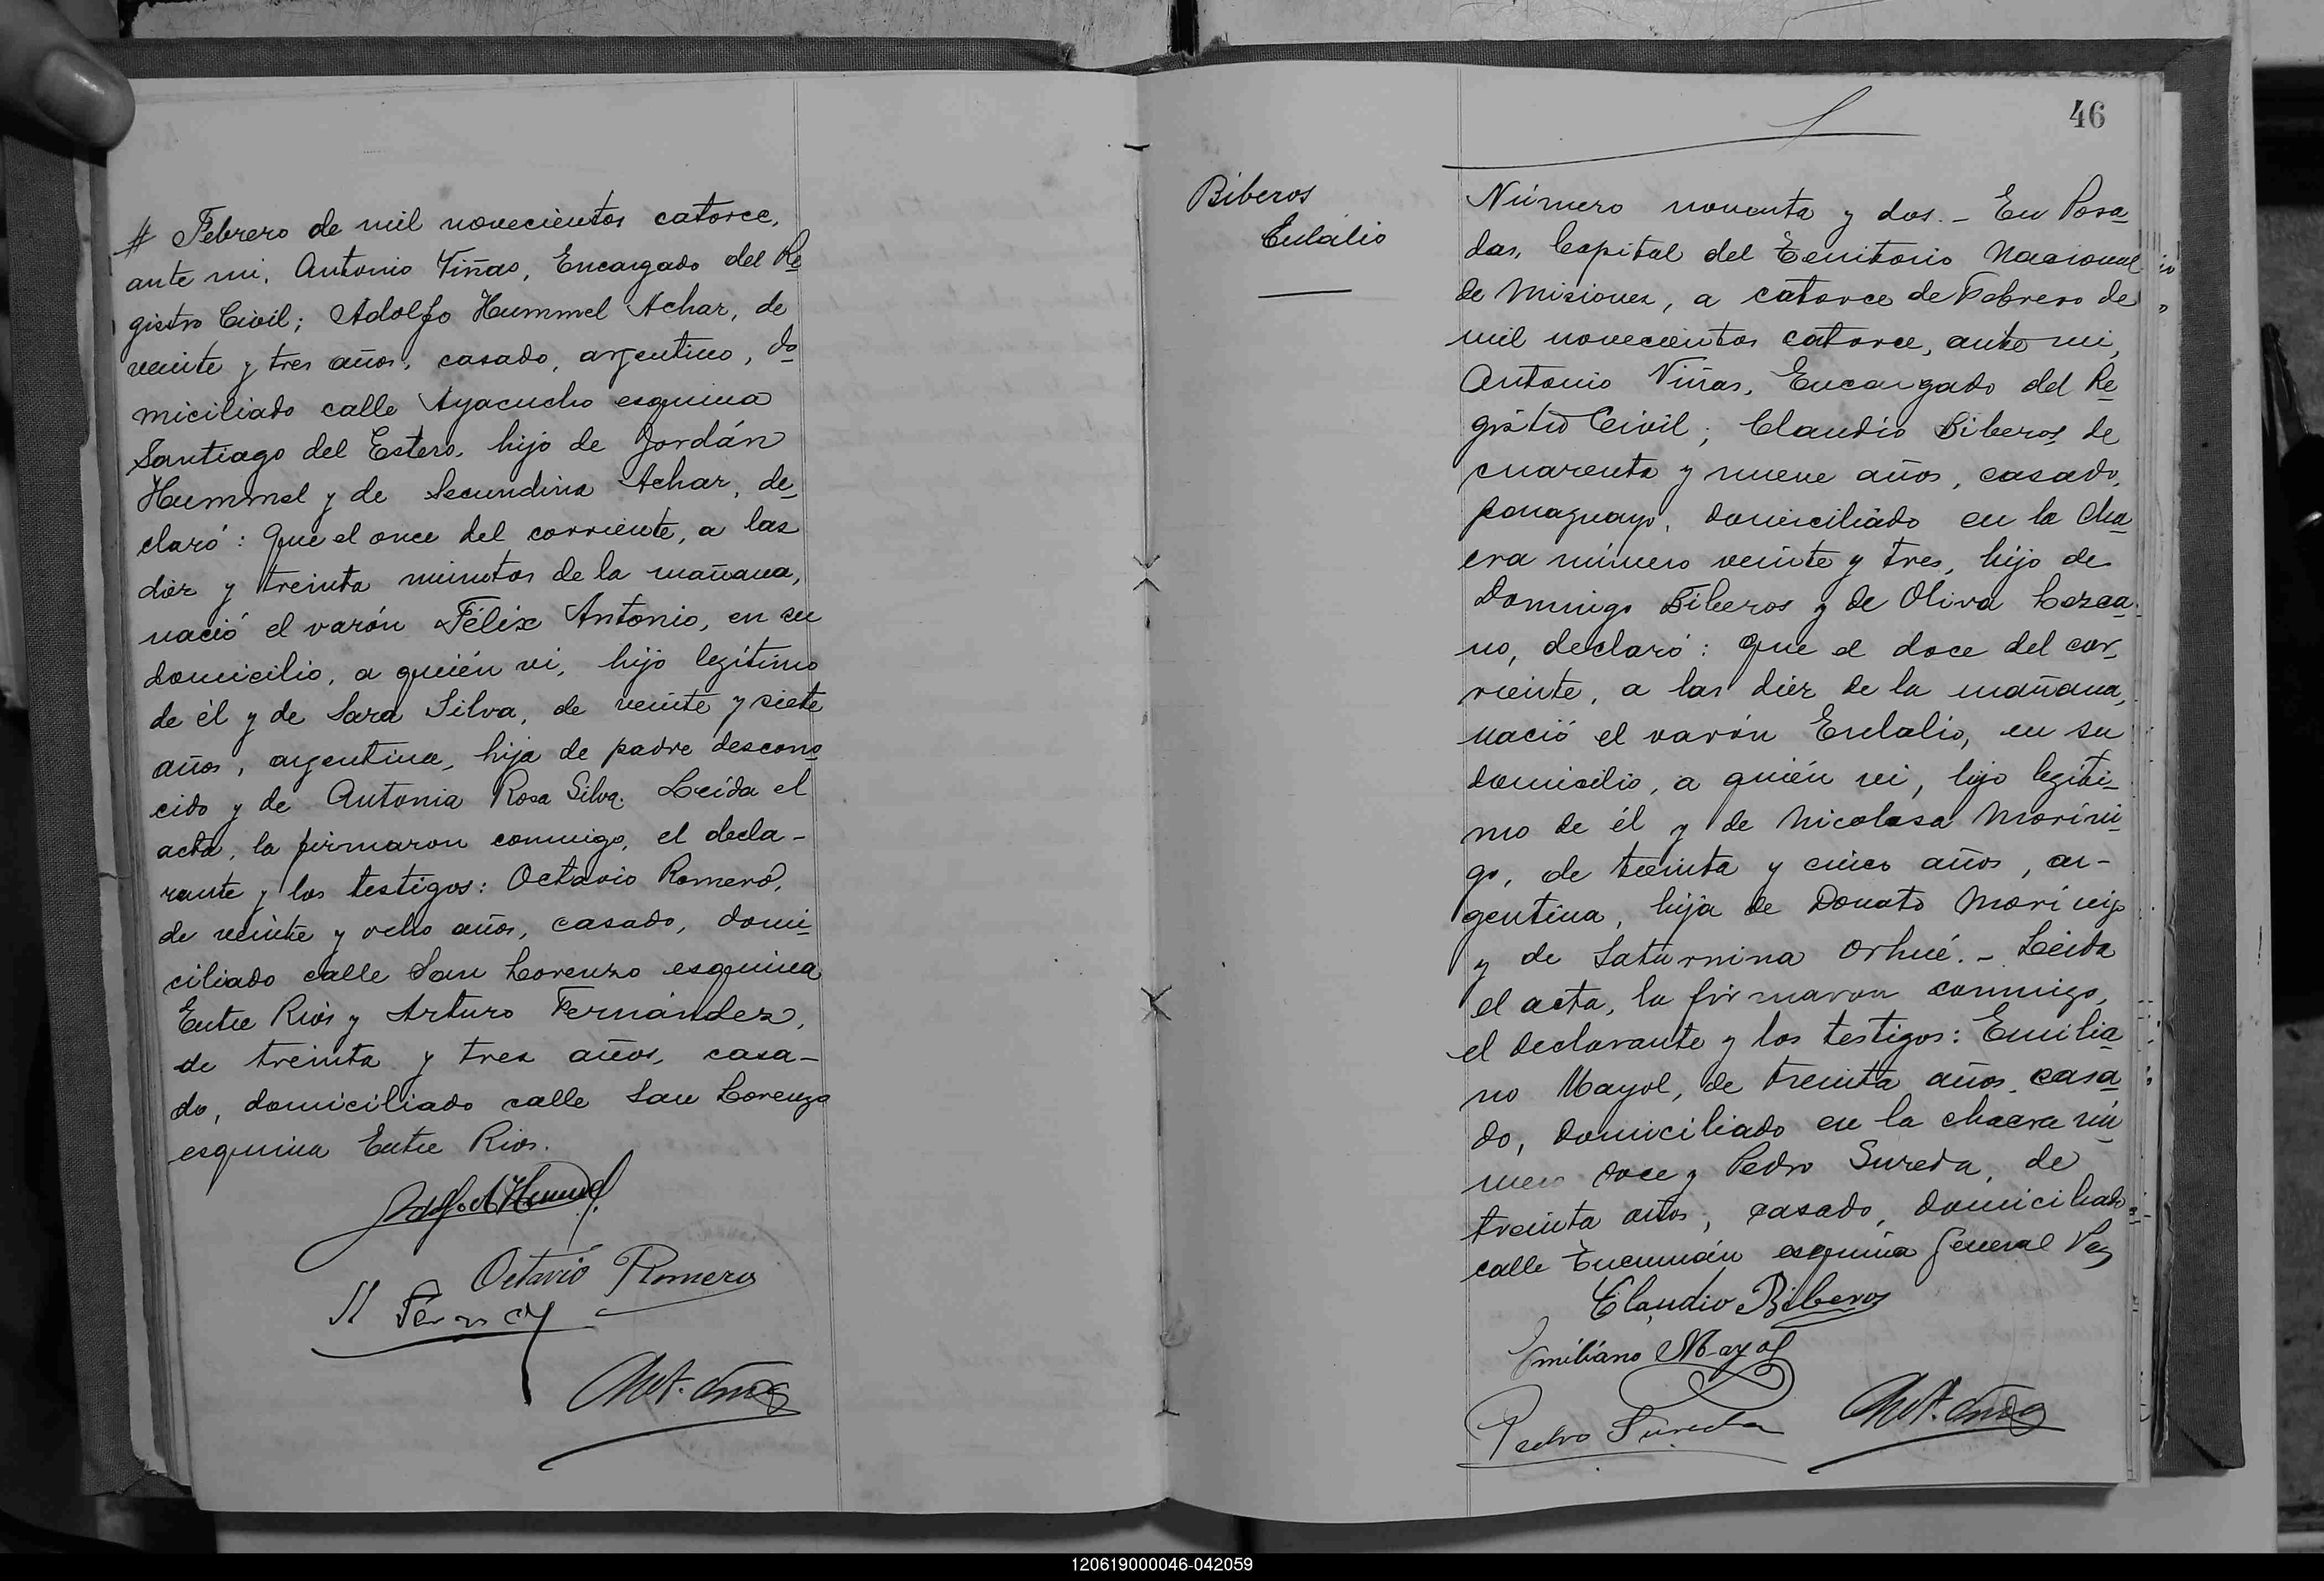 # Febrero de mil novecientos catorce,
ante mi, Antonio Viñas, Encargado del Re
gistro Civil; Adolfo Hummel Achar, de
veinte y tres años, casado, argentino, do
miciliado calle Ayacucho esquina
Santiago del Estero, hijo de Jordán
Hummel y de Secundina Achar, de
claró: Que el once del corriente, a las
diez y treinta minutos de la mañana,
nació el varón Félix Antonio, en su
domicilio, a quién vi, hijo legítimo
de él y de Sara Silva, de veinte y siete
años, argentina, hija de padre descono
cido y de Antonia Rosa Silva. Leída el
acta, la firmaron conmigo, el decla-
rante y los testigos: Octavio Romero,
de veinte y ocho años, casado, domi-
ciliado calle San Lorenzo esquina
Entre Rios y Arturo Fernández,
de treinta y tres años, casa-
do, domiciliado calle San Lorenzo
esquina Entre Rios.
Octavio Romero
46
Biberos
Eulalio
Número noventa y dos.- En Posa
das, Capital del Territorio Nacional
de Misiones, a catorce de Febrero de
mil novecientos catorce, ante mi,
Antonio Viñas, Encargado del Re
gistro Civil; Claudio Biberos, de
cuarenta y nueve años, casado,
paraguayo, domiciliado en la cha
cra número veinte y tres, hijo de
Domingo Biberos y de Oliva Lezca
no, declaró: Que el doce del cor
riente, a las diez de la mañana,
nació el varón Eulalio, en su
domicilio, a quién vi, hijo legíti-
mo de él y de Nicolasa Moríni-
go, de treinta y cinco años, ar-
gentina, hija de Donato Morínigo
y de Saturnina Orhué.- Leida
el acta, la firmaron conmigo,
el declarante y los testigos: Emilia
no Mayol, de treinta años, casa
do, domiciliado en la chacra nú
mero doce y Pedro Sureda, de
treinta años, casado, domiciliado
calle Tucumán esquina General Paz
Claudio Biberos
Emiliano Mayol
Pedro Sureda
120619000046-042059